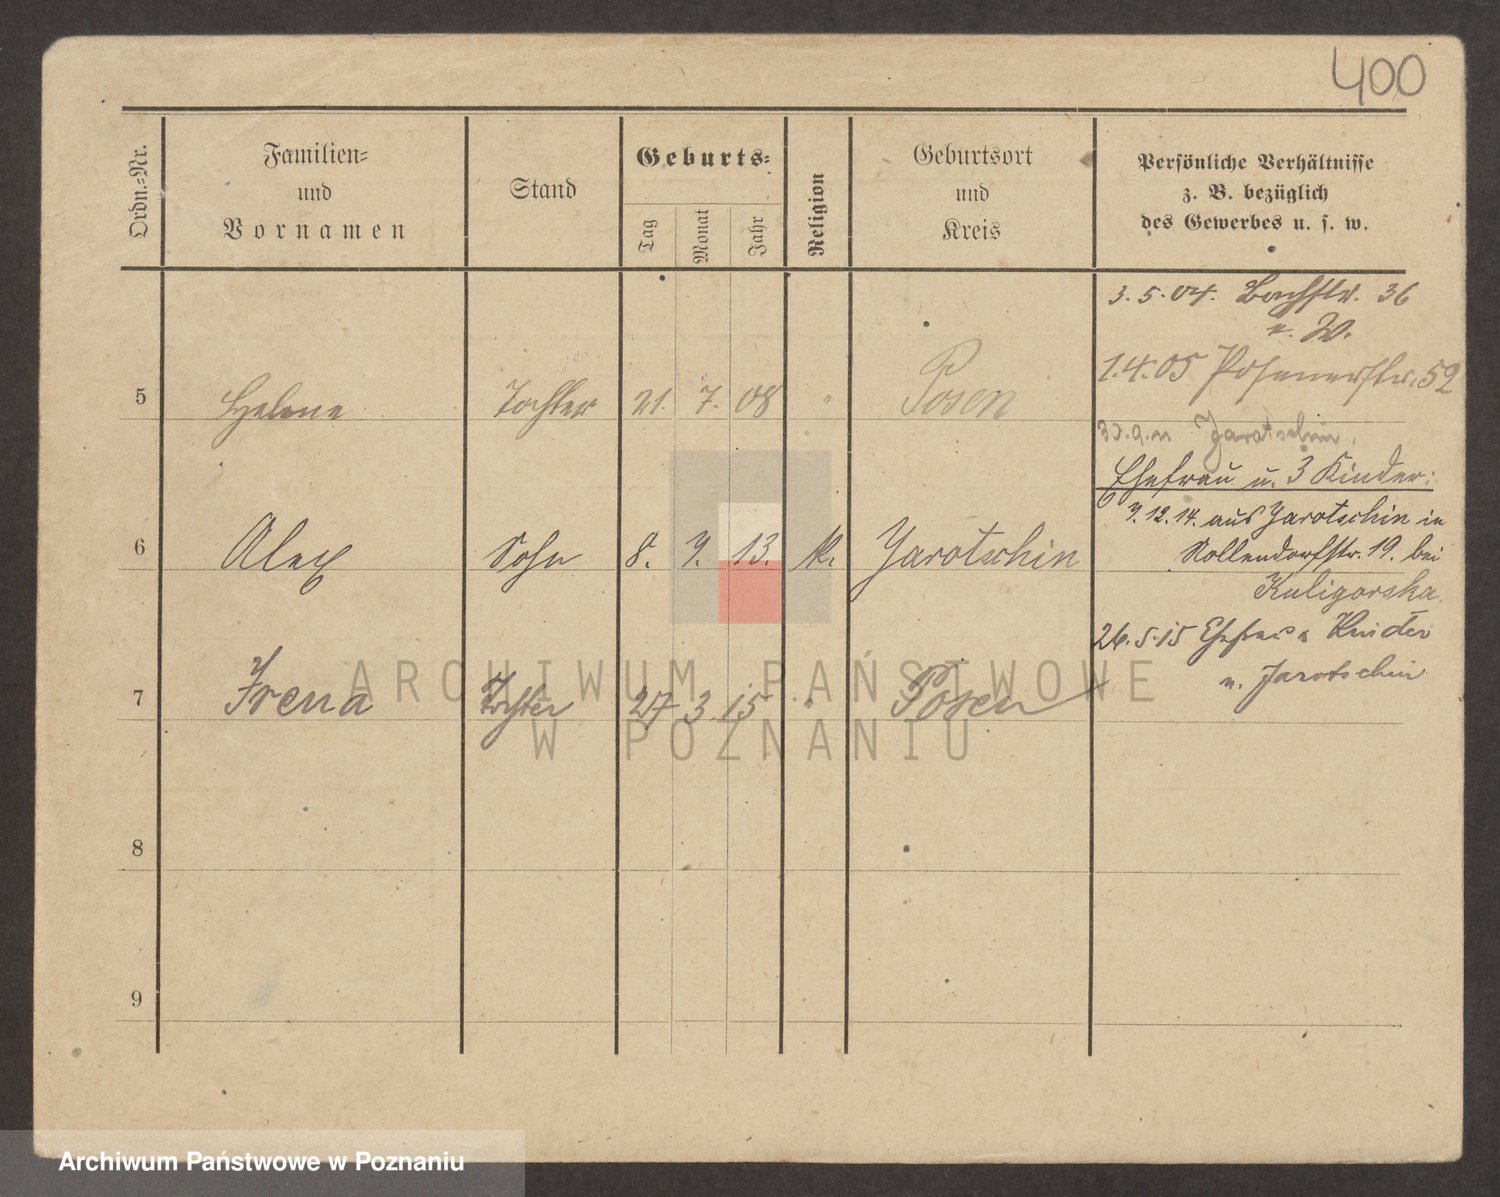 400
Ordn.-Nr.
Familien-
und
Vornamen
Stand
Geburts-
Tag
Monat
Jahr
Religion
Geburtsort
und
Kreis
Persönliche Verhältnisse
z. B. bezüglich
des Gewerbes u. s. w.
3. 5. 04. Bachstr. 36
n. W.
1.4.05 Posenerstr. 52
5 Helene Tochter 21. 7. 08 " Posen
Jarotschin.
Ehefrau u. 3 Kinder:
9. 12. 14. aus Jarotschin in
6 Alex Sohn 8. 9. 13. k. Jarotschin
Nollendorfstr. 19. bei
Kuligorska
26.5.15 Ehefrau u Kinder
n. Jarotschin
7 Irena Tochter 27 3 15 " Posen
8
9
ARCHIWUM PAŃSTWOWE
W POZNANIU
Archiwum Państwowe w Poznaniu